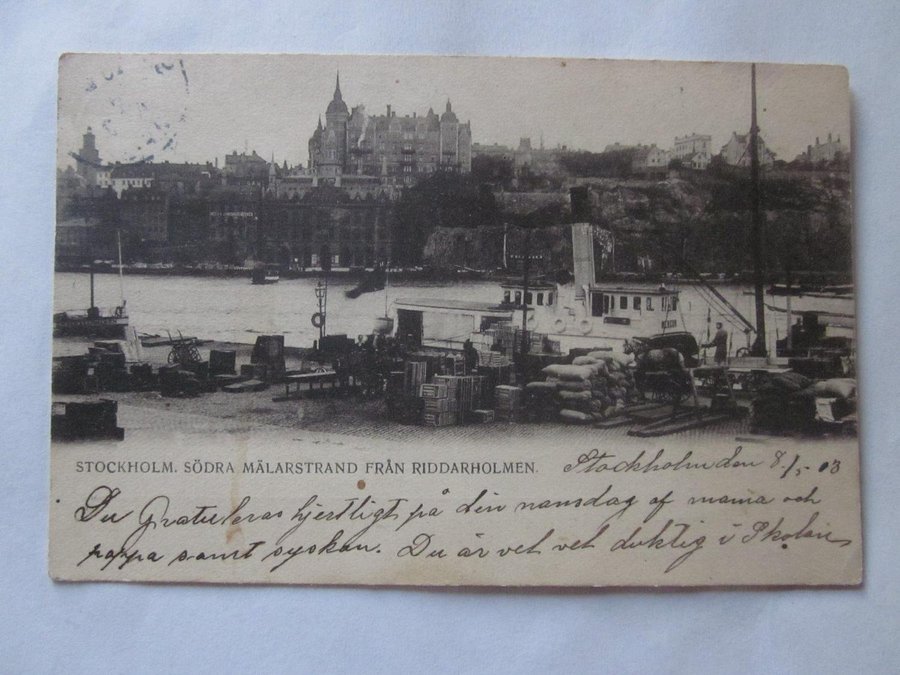 STOCKHOLM. SÖDRA MÄLARSTRAND FRÅN RIDDARHOLMEN.
Stockholm den 8/5 03
Du Gratuleras hjertligt på din namsdag af mama och
pappa samt syskon. Du är vel vel duktig i Skolan